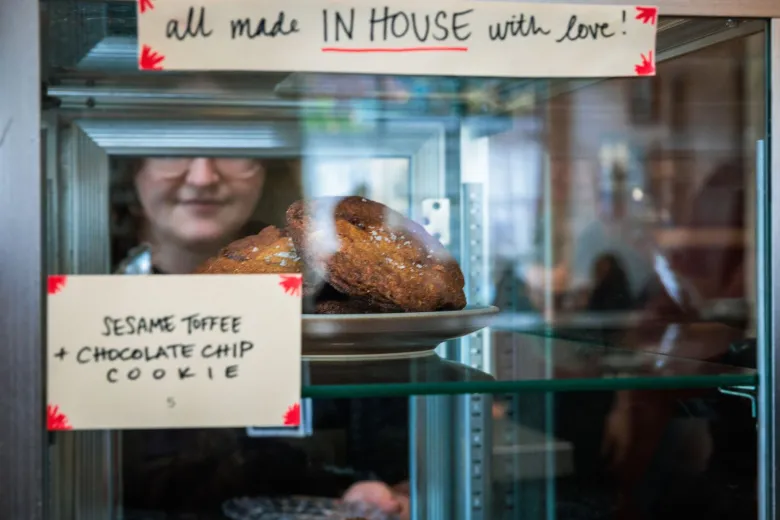 all made IN HOUSE with love!
SESAME TOFFEE
+ CHOCOLATE CHIP
COOKIE
5